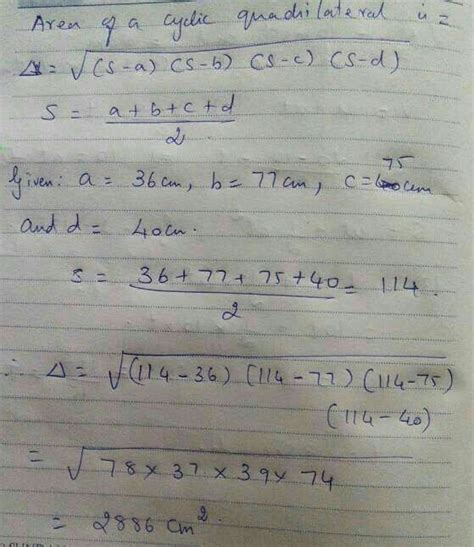 Area of a cyclic quadrilateral is =
Δ = √(s-a) (s-b) (s-c) (s-d)
S = a+b+c+d / 2
Given: a = 36cm, b = 77cm, c = 75 cm
and d = 40cm.
S = 36+77+75+40 / 2 = 114.
∴ Δ = √(114-36) (114-77) (114-75)
(114-40)
= √78 × 37 × 39 × 74
= 2886 cm².